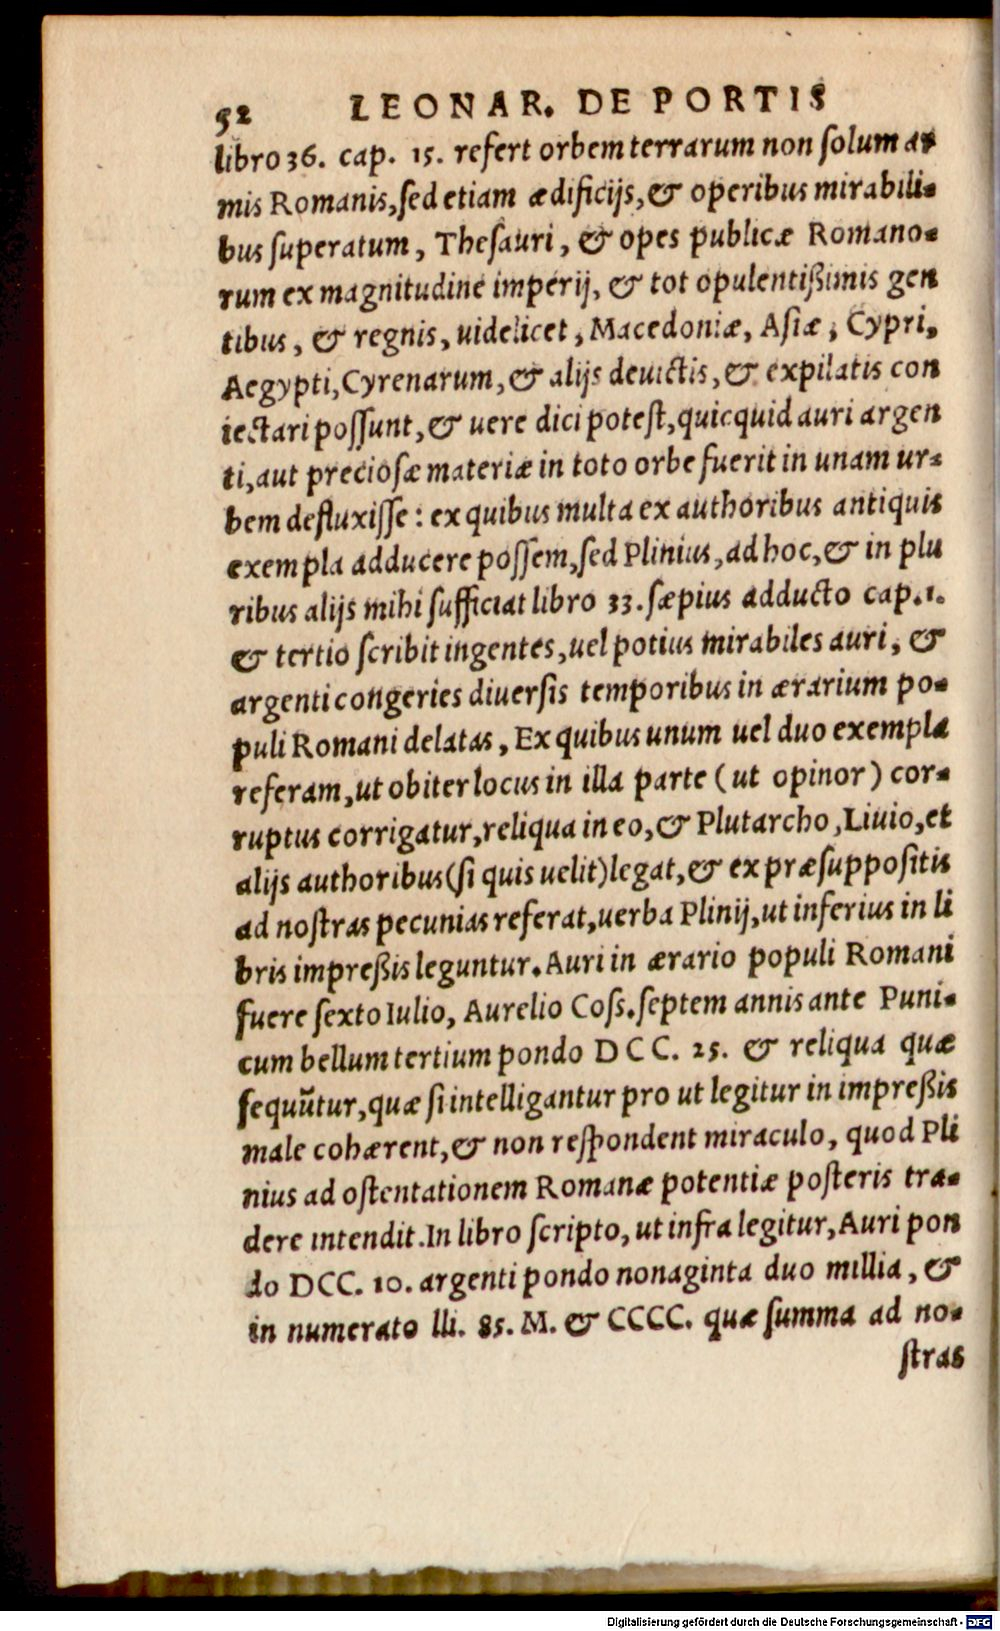 52 LEONAR. DE PORTIS
libro 36. cap. 15. refert orbem terrarum non ſolum ar
mis Romanis, ſed etiam ædificijs, & operibus mirabili-
bus ſuperatum, Theſauri, & opes publicæ Romano-
rum ex magnitudine imperij, & tot opulentißimis gen
tibus, & regnis, uidelicet, Macedoniæ, Aſiæ, Cypri,
Aegypti, Cyrenarum, & alijs deuictis, & expilatis con
iectari poſſunt, & uere dici poteſt, quicquid auri argen
ti, aut precioſæ materiæ in toto orbe fuerit in unam ur-
bem defluxiſſe: ex quibus multa ex authoribus antiquis
exempla adducere poſſem, ſed Plinius, ad hoc, & in plu
ribus alijs mihi ſufficiat libro 33. ſæpius adducto cap. 1.
& tertio ſcribit ingentes, uel potius mirabiles auri, &
argenti congeries diuerſis temporibus in ærarium po-
puli Romani delatas, Ex quibus unum uel duo exempla
referam, ut obiter locus in illa parte (ut opinor) cor-
ruptus corrigatur, reliqua in eo, & Plutarcho, Liuio, et
alijs authoribus (ſi quis uelit) legat, & ex præſuppoſitis
ad noſtras pecunias referat, uerba Plinij, ut inferius in li
bris impreßis leguntur. Auri in ærario populi Romani
fuere ſexto Iulio, Aurelio Coſſ. ſeptem annis ante Puni-
cum bellum tertium pondo DCC. 25. & reliqua quæ
ſequũtur, quæ ſi intelligantur pro ut legitur in impreßis
male cohærent, & non reſpondent miraculo, quod Pli
nius ad oſtentationem Romanæ potentiæ poſteris tra-
dere intendit. In libro ſcripto, ut infra legitur, Auri pon
do DCC. 10. argenti pondo nonaginta duo millia, &
in numerato lli. 85. M. & CCCC. quæ ſumma ad no-
ſtras
Digitalisierung gefördert durch die Deutsche Forschungsgemeinschaft - DFG